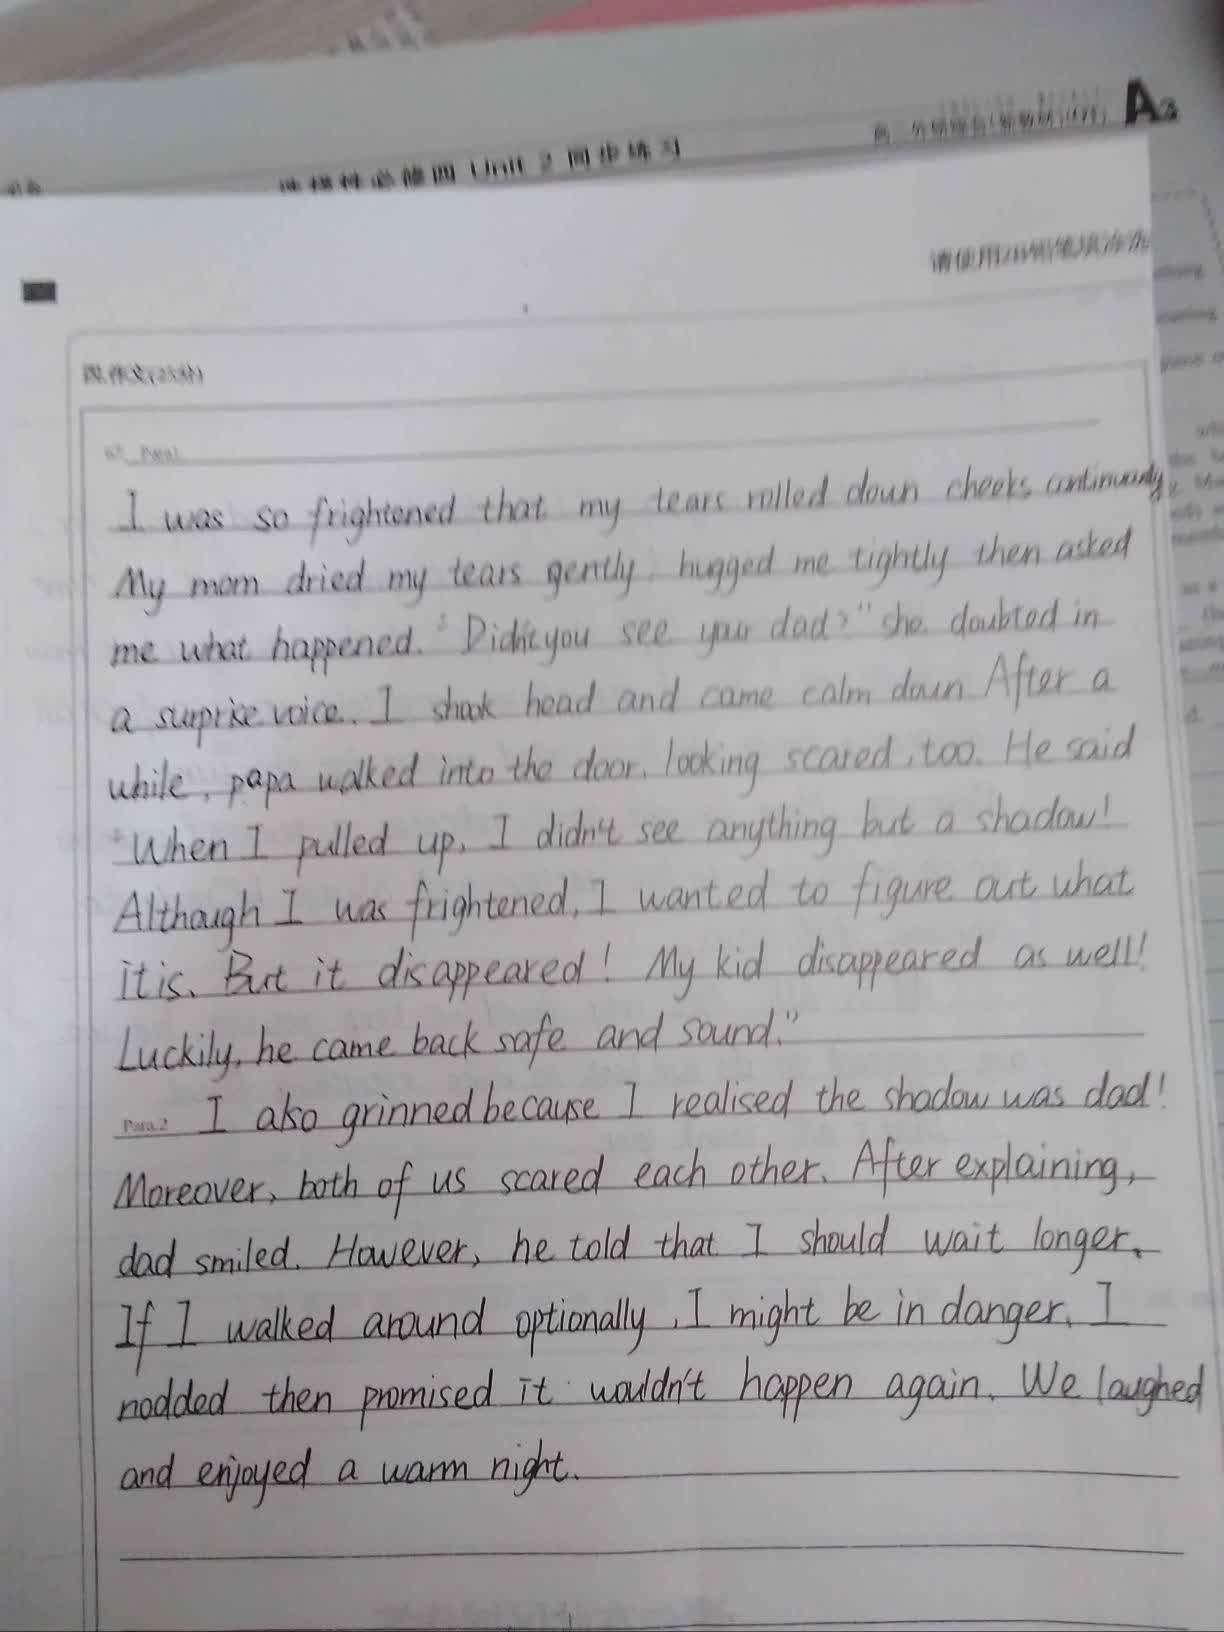 选择性必修四 Unit 2 同步练习
A3
请使用2B铅笔填涂选
四.作文(25分)
67. Para1.
I was so frightened that my tears rolled down cheeks continuously.
My mom dried my tears gently, hugged me tightly then asked
me what happened. "Didn't you see your dad?" she doubted in
a surprise voice. I shook head and came calm down After a
while, papa walked into the door, looking scared, too. He said
"When I pulled up, I didn't see anything but a shadow!
Although I was frightened, I wanted to figure out what
it is. But it disappeared! My kid disappeared as well!
Luckily, he came back safe and sound."
Para.2 I also grinned because I realised the shadow was dad!
Moreover, both of us scared each other. After explaining,
dad smiled. However, he told that I should wait longer.
If I walked around optionally, I might be in danger. I
nodded then promised it wouldn't happen again. We laughed
and enjoyed a warm night.